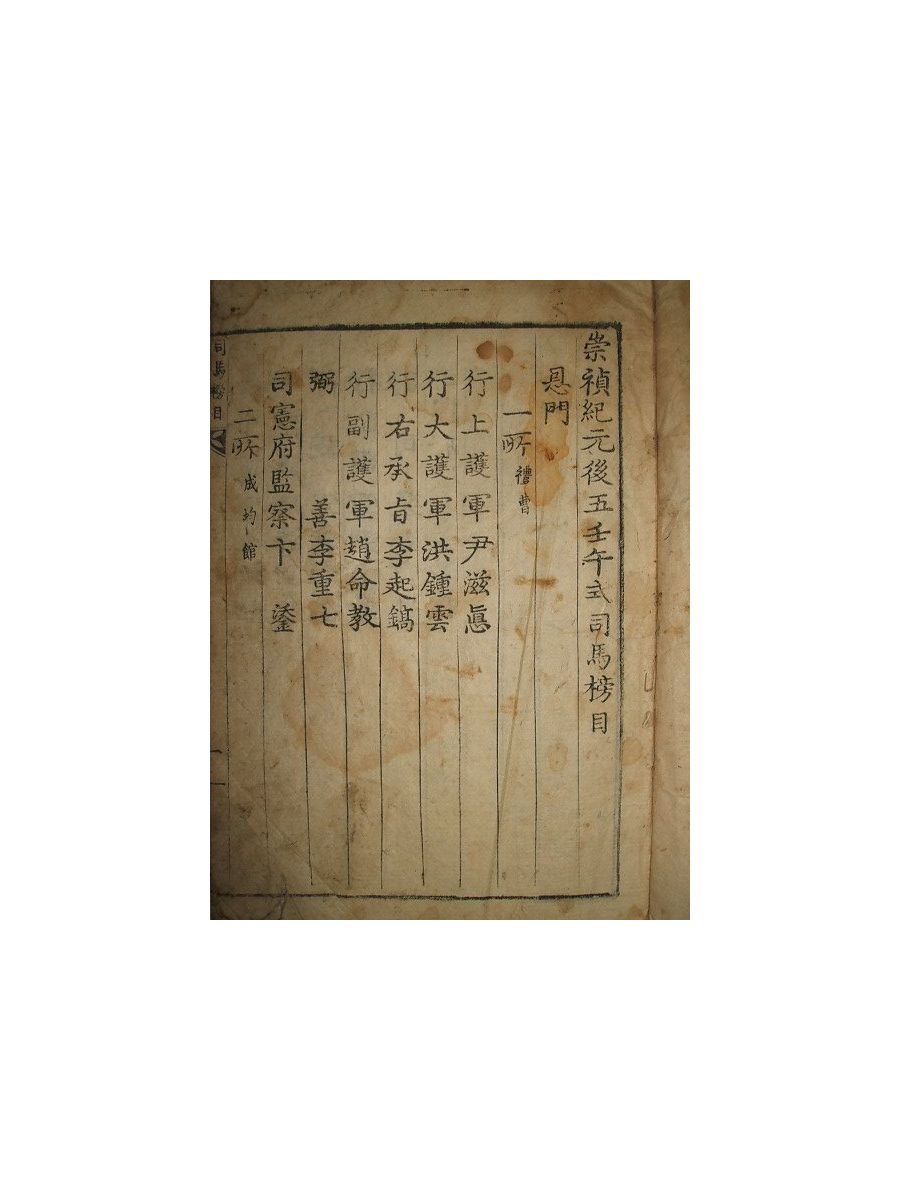 崇禎紀元後五壬午式司馬榜目
恩門
一所 禮曹
行上護軍尹滋悳
行大護軍洪鍾雲
行右承旨李起鎬
行副護軍趙命教
弼善李重七
司憲府監察卞鋈
二所 成均館
司馬榜目 一